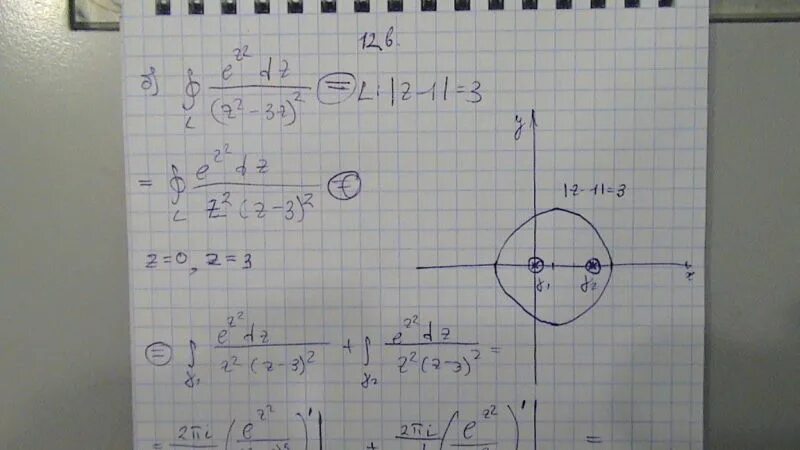 12 в.
б) ∮_L e^{z^2} dz / (z^2 - 3z)^2 = L: |z-1| = 3
= ∮_L e^{z^2} dz / z^2 (z-3)^2 =
z=0, z=3
y
|z-1|=3
x
γ_1 γ_2
= ∫_{γ_1} e^{z^2} dz / z^2 (z-3)^2 + ∫_{γ_2} e^{z^2} dz / z^2 (z-3)^2 =
= 2πi (e^{z^2})' | + 2πi (e^{z^2})' | =